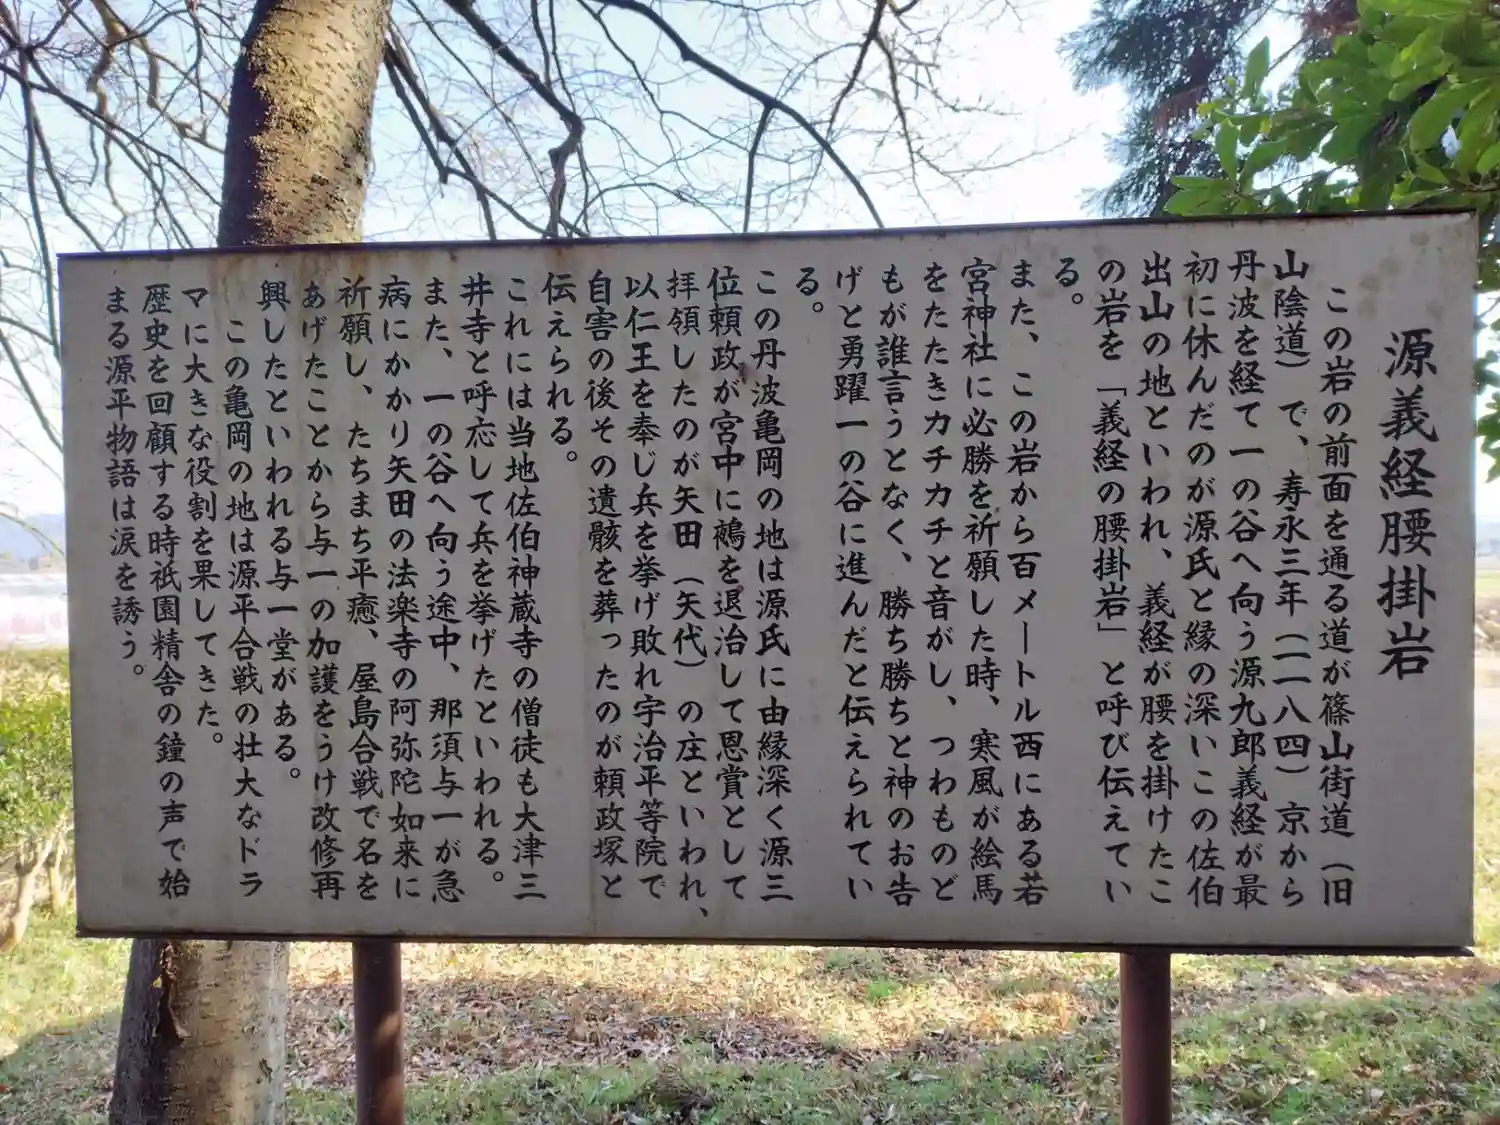 源義経腰掛岩
この岩の前面を通る道が篠山街道（旧
山陰道）で、寿永三年（一一八四）京から
丹波を経て一の谷へ向う源九郎義経が最
初に休んだのが源氏と縁の深いこの佐伯
出山の地といわれ、義経が腰を掛けたこ
の岩を「義経の腰掛岩」と呼び伝えてい
る。
また、この岩から百メートル西にある若
宮神社に必勝を祈願した時、寒風が絵馬
をたたきカチカチと音がし、つわものど
もが誰言うとなく、勝ち勝ちと神のお告
げと勇躍一の谷に進んだと伝えられてい
る。
この丹波亀岡の地は源氏に由縁深く源三
位頼政が宮中に鵺を退治して恩賞として
拝領したのが矢田（矢代）の庄といわれ、
以仁王を奉じ兵を挙げ敗れ宇治平等院で
自害の後その遺骸を葬ったのが頼政塚と
伝えられる。
これには当地佐伯神蔵寺の僧徒も大津三
井寺と呼応して兵を挙げたといわれる。
また、一の谷へ向う途中、那須与一が急
病にかかり矢田の法楽寺の阿弥陀如来に
祈願し、たちまち平癒、屋島合戦で名を
あげたことから与一の加護をうけ改修再
興したといわれる与一堂がある。
この亀岡の地は源平合戦の壮大なドラ
マに大きな役割を果してきた。
歴史を回顧する時祇園精舎の鐘の声で始
まる源平物語は涙を誘う。